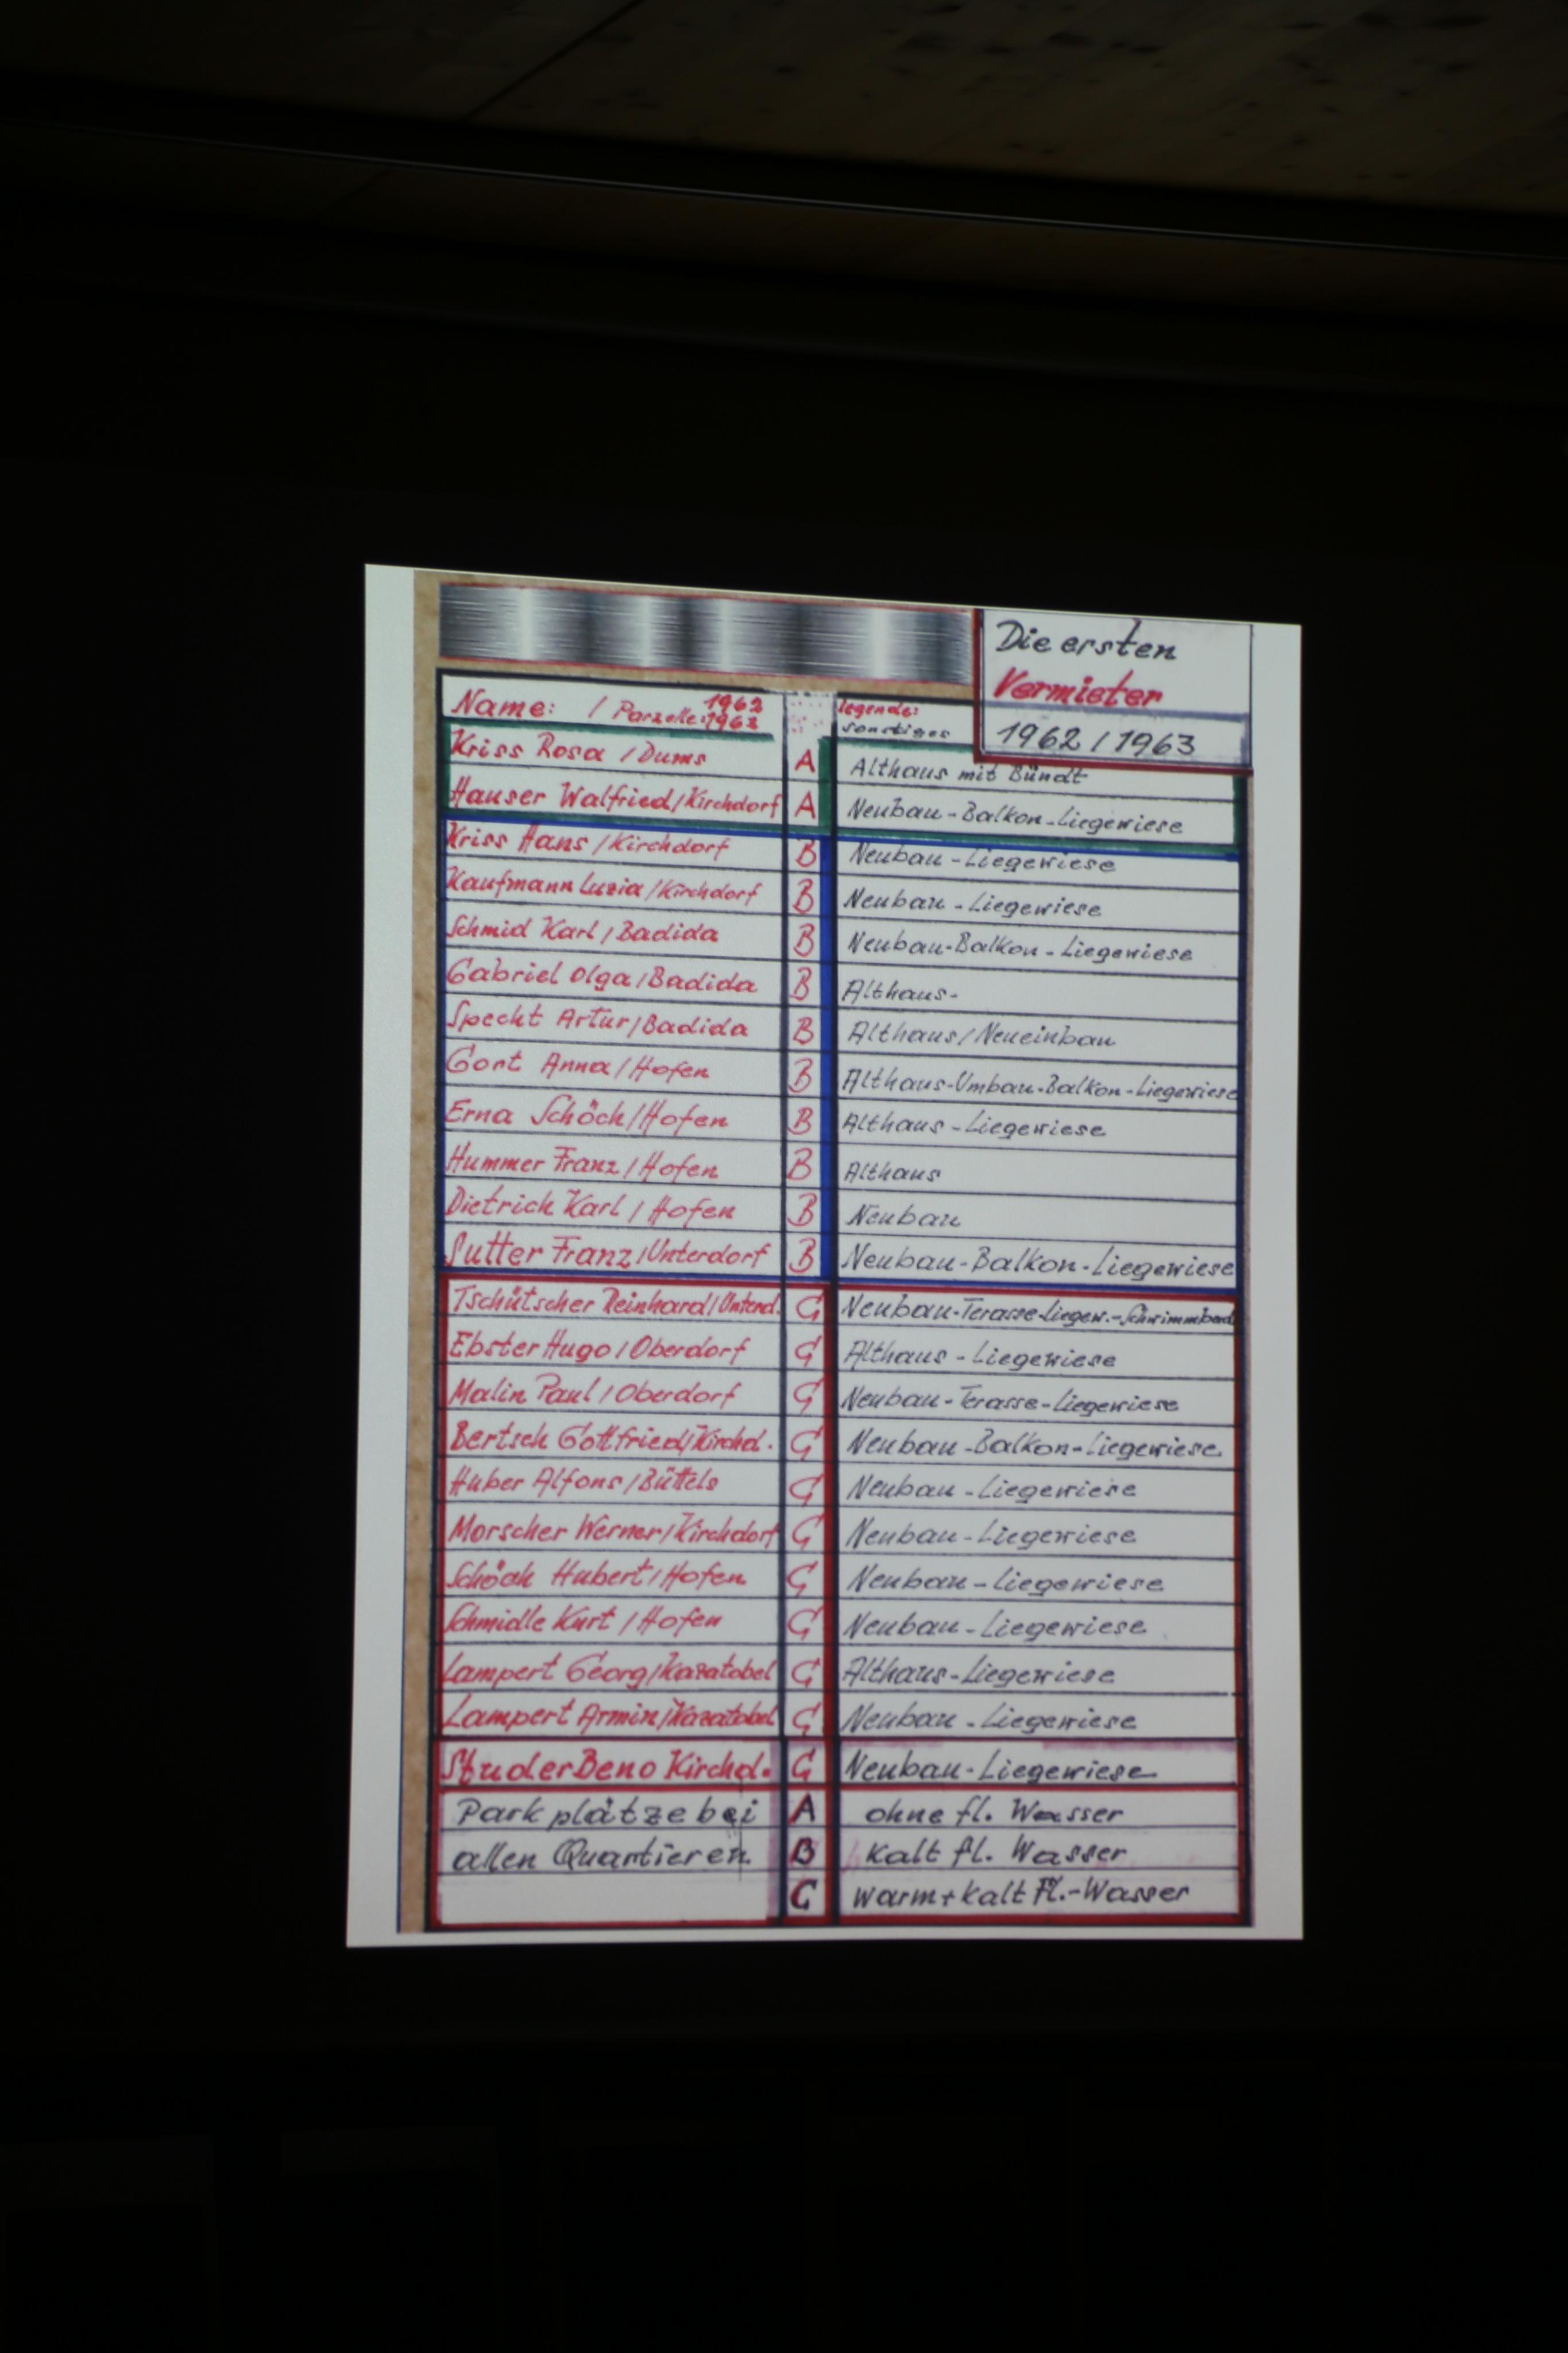 Die ersten
Vermieter
1962 / 1963
Name: / Parzelle: 1962
1963
legende:
sonstiges
Kriss Rosa / Dums A Althaus mit Bündt
Hauser Walfried / Kirchdorf A Neubau - Balkon - Liegewiese
Kriss Hans / Kirchdorf B Neubau - Liegewiese
Kaufmann Luzia / Kirchdorf B Neubau - Liegewiese
Schmid Karl / Badida B Neubau - Balkon - Liegewiese
Gabriel Olga / Badida B Althaus -
Specht Artur / Badida B Althaus / Neueinbau
Gort Anna / Hofen B Althaus - Umbau - Balkon - Liegewiese
Erna Schöch / Hofen B Althaus - Liegewiese
Hummer Franz / Hofen B Althaus
Dietrich Karl / Hofen B Neubau
Sutter Franz / Unterdorf B Neubau - Balkon - Liegewiese
Tschütscher Reinhard / Unterd. C Neubau - Terasse - Liegew. - Schwimmbad
Ebster Hugo / Oberdorf C Althaus - Liegewiese
Malin Paul / Oberdorf C Neubau - Terasse - Liegewiese
Bertsch Gottfried / Kirchd. C Neubau - Balkon - Liegewiese
Huber Alfons / Büttels C Neubau - Liegewiese
Morscher Werner / Kirchdorf C Neubau - Liegewiese
Schöch Hubert / Hofen C Neubau - Liegewiese
Schmidle Kurt / Hofen C Neubau - Liegewiese
Lampert Georg / Kazatobel C Althaus - Liegewiese
Lampert Armin / Kazatobel C Neubau - Liegewiese
Studer Beno Kirchd. C Neubau - Liegewiese
Parkplätze bei A ohne fl. Wasser
allen Quartieren B kalt fl. Wasser
C warm + kalt Fl. - Wasser